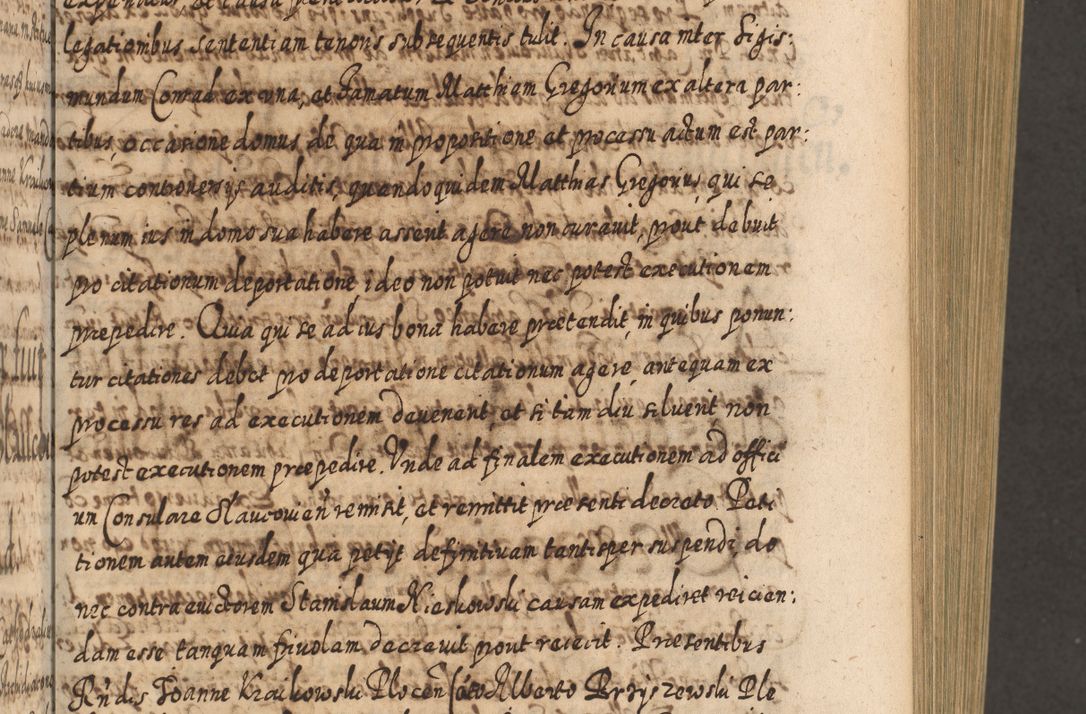 legationibus sententiam tenoris subsequentis tulit. In causa inter Sigis:
mundum Conrad ex una, et Famatum Matthiam Gregorium ex altera par:
tibus, occasione domus, de qua in propositione et processu actum est par:
tium controversijs auditis, quandoquidem Matthias Gregorius, qui se
plenum ius in domo sua habere asserit agere non curavit, prout debuit
pro citationum deportatione ideo non potuit nec potest executionem
præpedire. Quia qui se ad ius bona habere prætendit, in quibus ponun:
tur citationes debet pro deportatione citationum agere, antequam ex
processu res ad executionem devenerit, et si tam diu siluerit non
potest executionem præpedire. Unde ad finalem executionem ad offici
um Consulare Slavcovien remisit, et remittit præsenti decreto. Peti
tionem autem eiusdem qua petijt definitivam tantisper suspendi, do
nec contra evictorem Stanislaum Kieskowski causam expediret reicien:
dam esse tanquam frivolam decrevit prout reiecit. Præsentibus
Rndis Joanne Kraikowski Plocen Alberto Przyszewski Ple